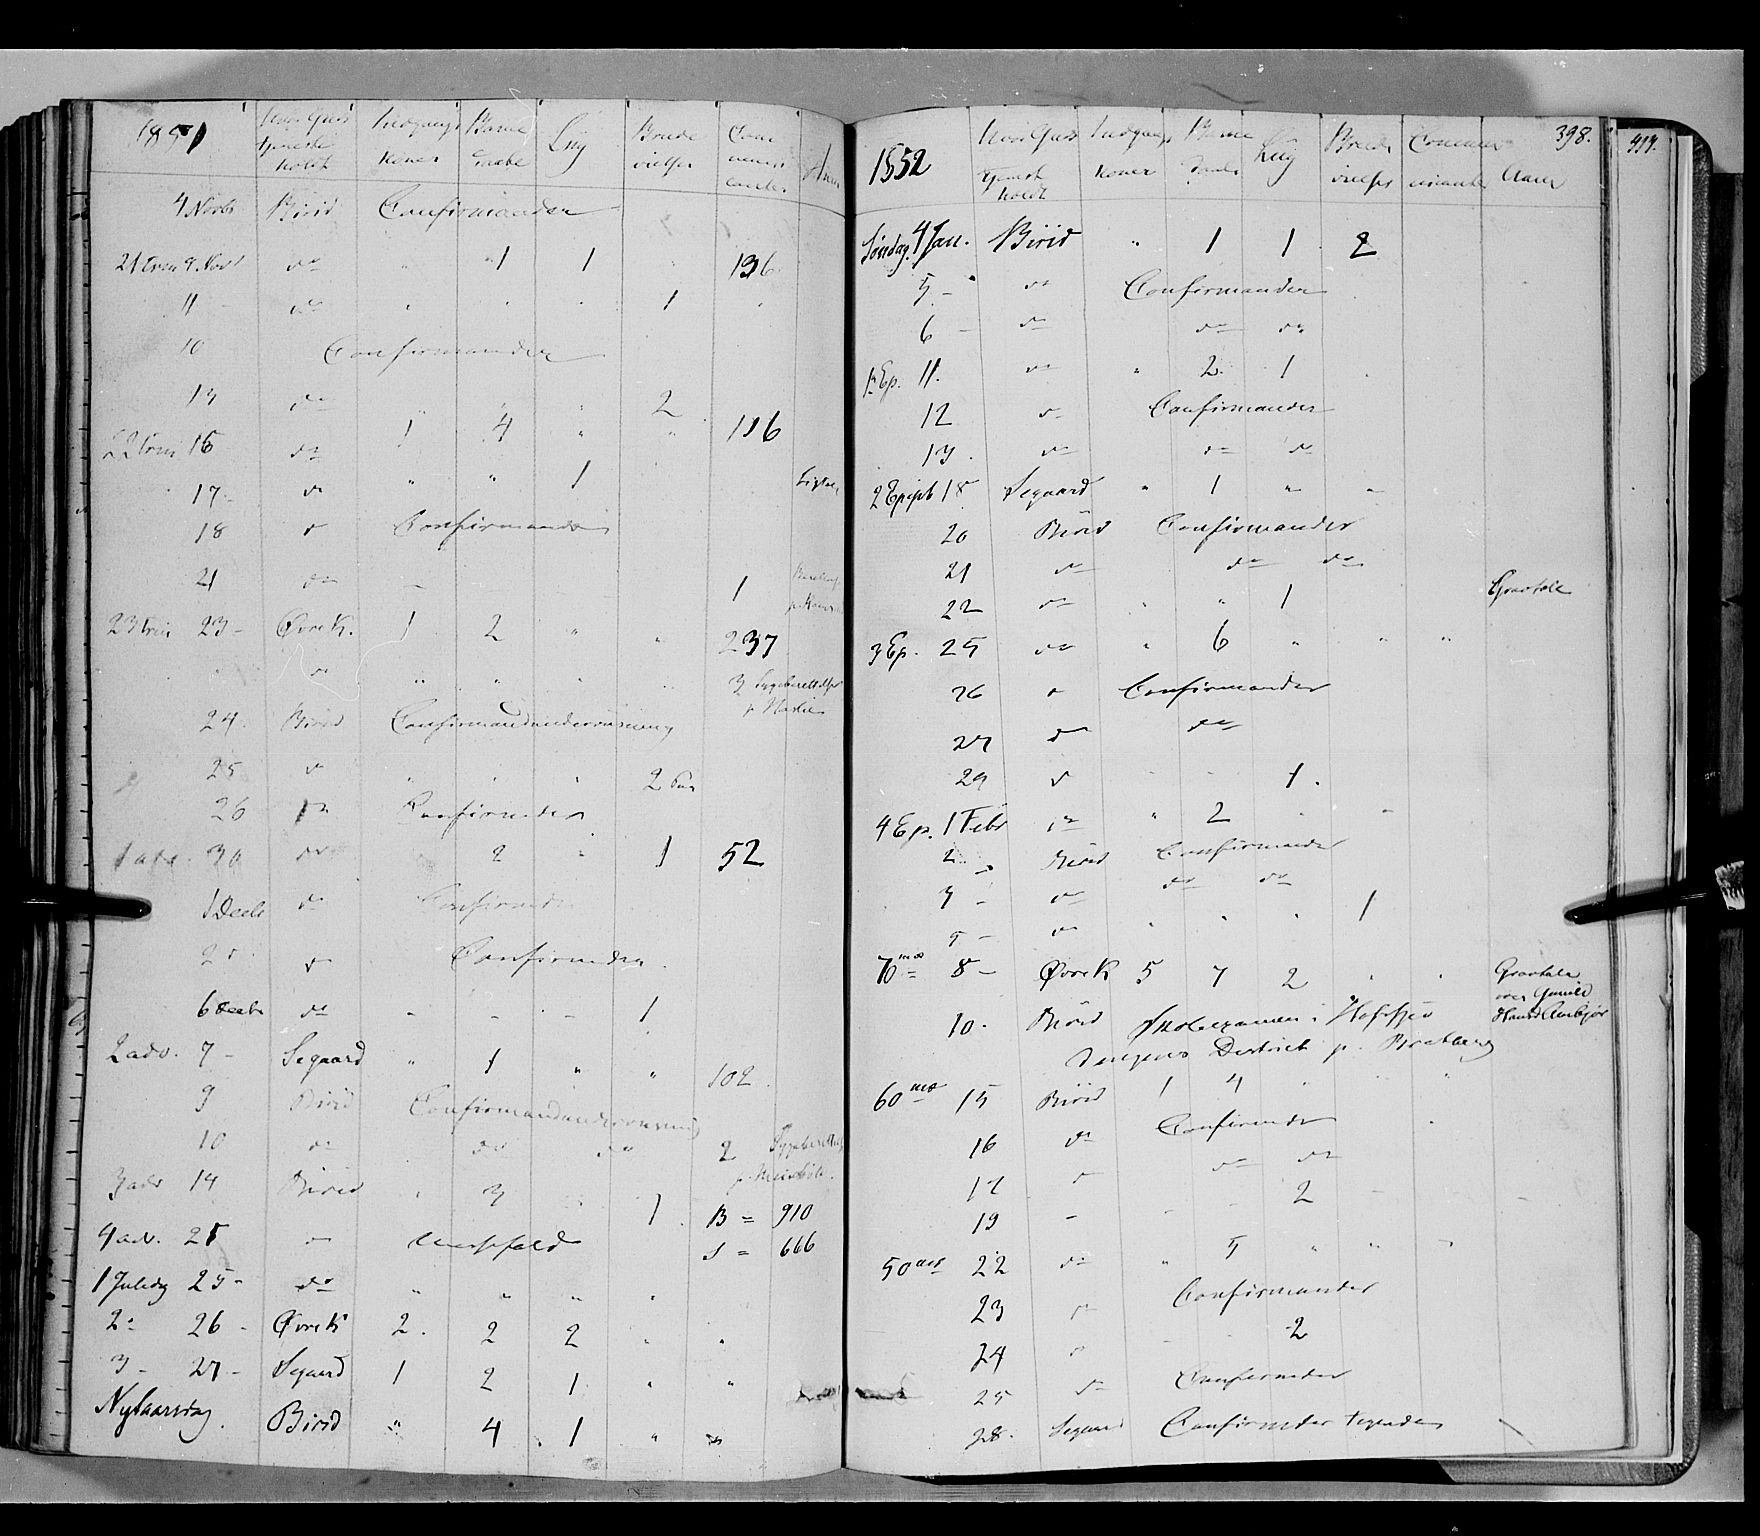 1851
Hvor Guds tjeneste holdt | Indgangs koner | Barne Daabe | Liig | Brude vielser | Com muni canter | Anm
4 Novbr Birid Confirmander
21 Trin 9 Novbr do " 1 1 136
11 - do " " " 1 "
10 Confirmander
13 do " " " 2
22 Trin 16 do 1 4 " " 116
17 - do " " 1
18 d Confirmander
21 do - 1
23 Trin 23 - Øvre K. 1 2 " " 237
" do " " " " 3 Sygeberettelser
24. Birid Confirmandundervisning
25 d " " " 2 Par
26 do Confirmander
1 adv. 30 do " 2 " 1 52
1 Decbr do Confirmander
2 d Confirmander
6 Decbr do - - - 1
2 adv. 7 - Segaard " 1 " " 102
9 Birid Confirmandundervisning
10 do do do 2 Sygeberettelse
3 adv 14 Birid " 3 1 B = 910
4 adv. 21 - Messefald S = 666
1 Juledag 25 - do " " " "
2 - 26 - Øvre K 2. 2 2 " "
3 - 27 - Segaard 1 2 1 " "
Nytaarsdag Birid " 4 1 " "
398.
414.
1852
Hvor Guds tjeneste holdt | Indgangs koner | Barne Daab | Liig | Brude vielser | Commu nicanter | Anm
Søndag 4 Jan. Birid " 1 1 2
5 - do Confirmander
6 - do do do
1 Ep. 11. do " 2 1
12 do Confirmander
13. do do do
2 Epiph 18 Segaard " 1 " "
20 Birid Confirmander
21 do do do
22 do " " 1 Gravtale
3 Ep. 25 do " 6 " " "
26 d Confirmander
27 do do
29 d " " 1.
4 Ep. 1 Febr do " 2 " "
2 - Birid Confirmander
3 - do do do
5 - do " " " 1
70mæ 8 - Øvre K 5 7 2 " " Gravtale
over Gunild
10. Birid Skoleexamen i
District p. Bratberg
60mæ 15 Birid 1 4 " " "
16 do Confirmander
17 - do do
19 - - - 2 -
50mæ 22 do " 5 " " "
23 d Confirmander
24 d - - 2
25 do Confirmander
28. Segaard Confirmander